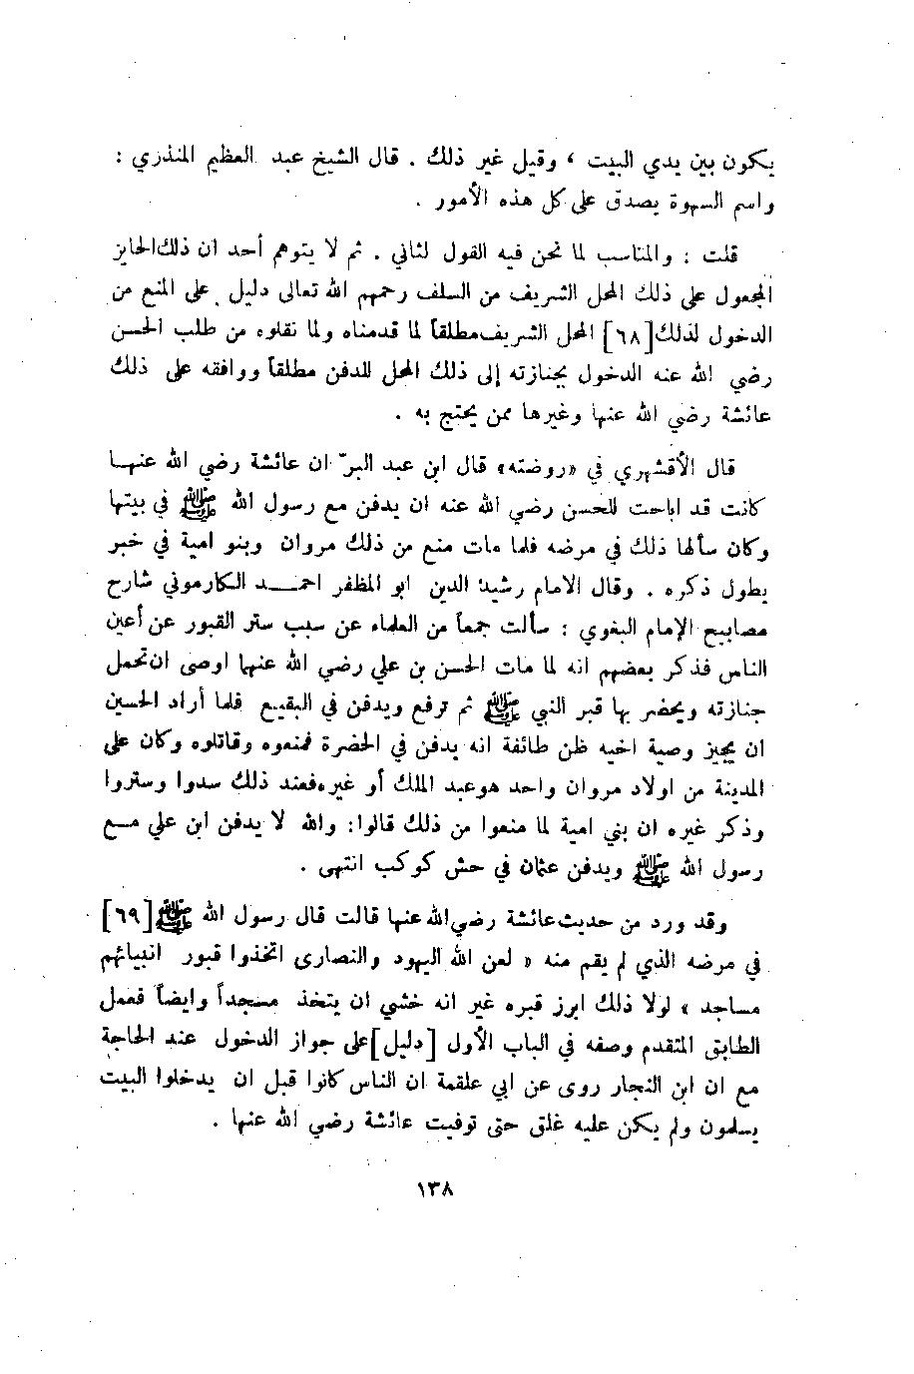 يكون بين يدي البيت ، وقيل غير ذلك . قال الشيخ عبد العظيم المنذري :
واسم السهوة يصدق على كل هذه الأمور .
قلت : والمناسب لما نحن فيه القول لثاني . ثم لا يتوهم أحد ان ذلك الحايز
المجعول على ذلك المحل الشريف من السلف رحمهم الله تعالى دليل على المنع من
الدخول لذلك [٦٨] المحل الشريف مطلقاً لما قدمناه ولما نقلوه من طلب الحسن
رضي الله عنه الدخول بجنازته إلى ذلك المحل للدفن مطلقاً ووافقه على ذلك
عائشة رضي الله عنها وغيرها ممن يحتج به .
قال الأقشهري في «روضته» قال ابن عبد البرّ ان عائشة رضي الله عنهـا
كانت قد اباحت للحسن رضي الله عنه ان يدفن مع رسول الله ﷺ في بيتها
وكان سألها ذلك في مرضه فلما مات منع من ذلك مروان وبنو امية في خبر
يطول ذكره . وقال الامام رشيد الدين ابو المظفر احمـــد الكارموني شارح
مصابيح الإمام البغوي : سألت جمعاً من العلماء عن سبب ستر القبور عن أعين
الناس فذكر بعضهم انه لما مات الحسن بن علي رضي الله عنهما اوصى ان تحمل
جنازته ويحضر بها قبر النبي ﷺ ثم ترفع ويدفن في البقيع فلما أراد الحسين
ان يجيز وصية اخيه ظن طائفة انه يدفن في الحضرة فمنعوه وقاتلوه وكان على
المدينة من اولاد مروان واحد هو عبد الملك أو غيره فعند ذلك سدوا وستروا
وذكر غيره ان بني امية لما منعوا من ذلك قالوا: والله لا يدفن ابن علي مـع
رسول الله ﷺ ويدفن عثمان في حش كوكب انتهى .
وقد ورد من حديث عائشة رضي الله عنها قالت قال رسول الله ﷺ [٦٩]
في مرضه الذي لم يقم منه « لعن الله اليهود والنصارى اتخذوا قبور انبيائهم
مساجد » لولا ذلك ابرز قبره غير انه خشي ان يتخذ مسجداً وايضاً فعمل
الطابق المتقدم وصفه في الباب الأول [دليل] على جواز الدخول عند الحاجة
مع ان ابن النجار روى عن ابي علقمة ان الناس كانوا قبل ان يدخلوا البيت
يسلمون ولم يكن عليه غلق حتى توفيت عائشة رضي الله عنها .
١٣٨